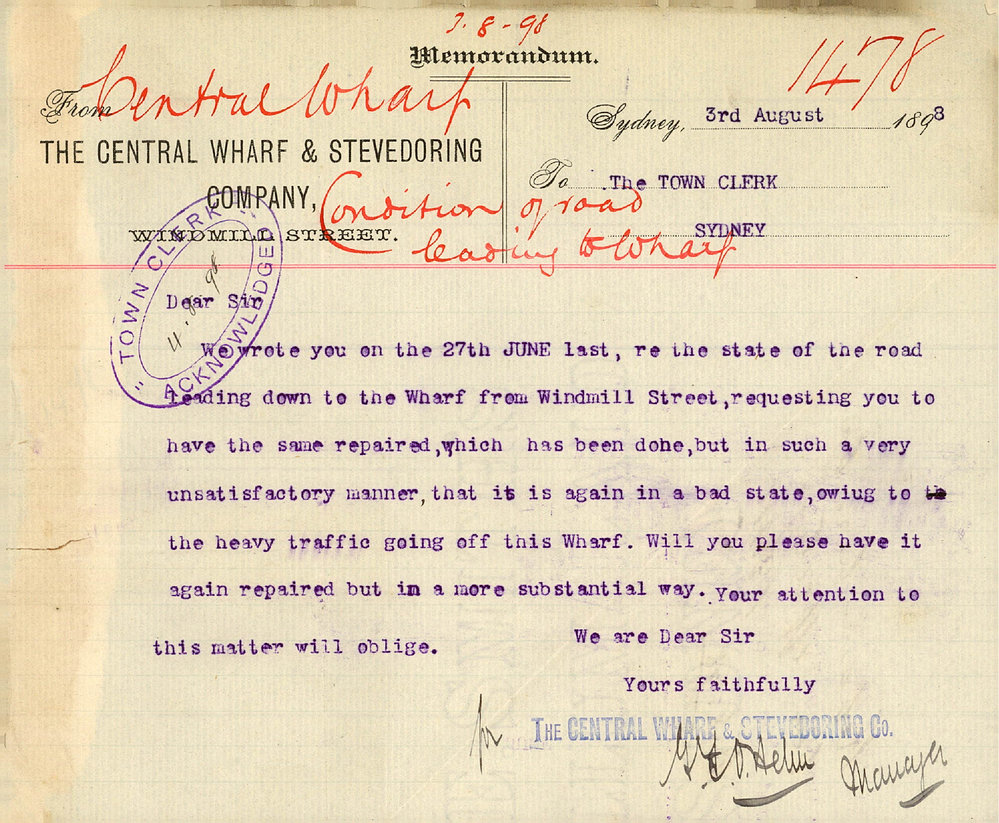 3.8-98
Memorandum.
1478
From Central Wharf
Sydney, 3rd August 1898
THE CENTRAL WHARF & STEVEDORING
COMPANY,
To The TOWN CLERK
WINDMILL STREET.
SYDNEY
Condition of road
leading to Wharf
"TOWN CLERK"
11.8.98
ACKNOWLEDGED
Dear Sir
We wrote you on the 27th JUNE last, re the state of the road
leading down to the Wharf from Windmill Street,requesting you to
have the same repaired,which has been done,but in such a very
unsatisfactory manner,that it is again in a bad state,owiug to th
the heavy traffic going off this Wharf. Will you please have it
again repaired but in a more substantial way. Your attention to
this matter will oblige.
We are Dear Sir
Yours faithfully
for THE CENTRAL WHARF & STEVEDORING Co.
Manager